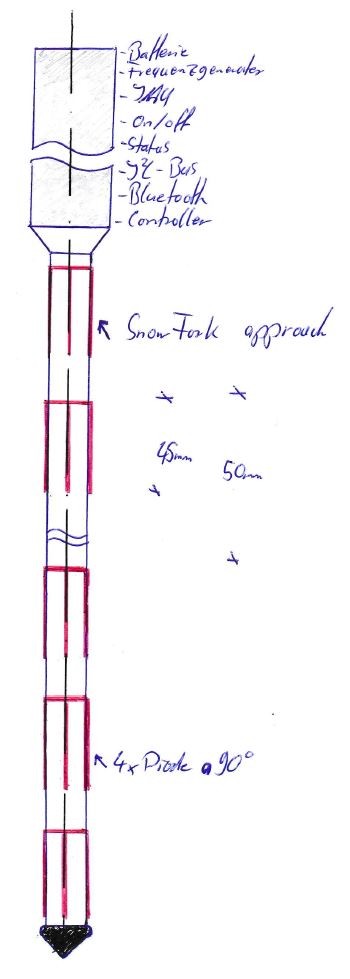 - Batterie
- Frequenzgenerator
- IMU
- On/off
- Status
- I²C - Bus
- Bluetooth
- Controller
Snow Fork approach
45mm
50mm
4x Diode a 90°